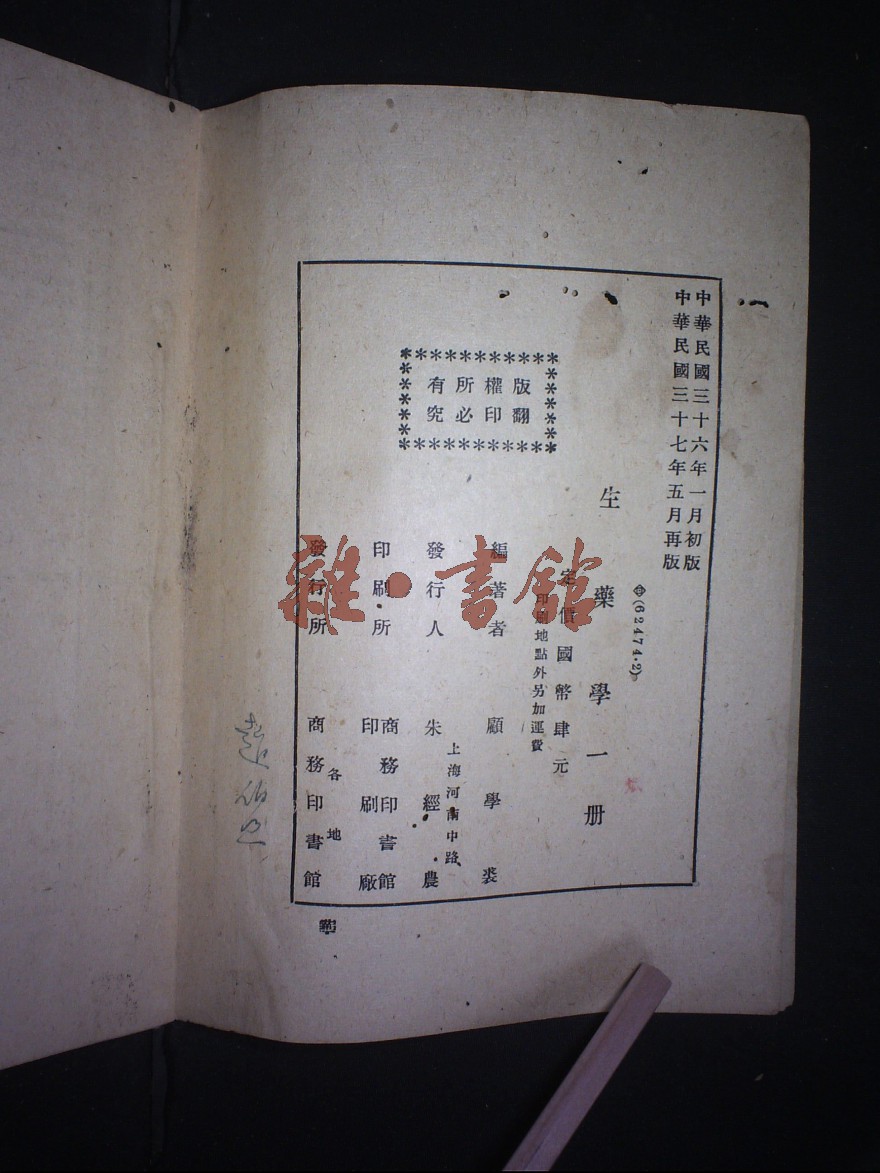 中華民國三十六年一月初版
中華民國三十七年五月再版
(62474·2)
生藥學一册
定價國幣肆元
印刷地點外另加運費
版權所有
翻印必究
編著者 顧學裘
發行人 朱經農
上海河南中路
印刷所 商務印書館印刷廠
發行所 商務印書館
各地
雜·書館